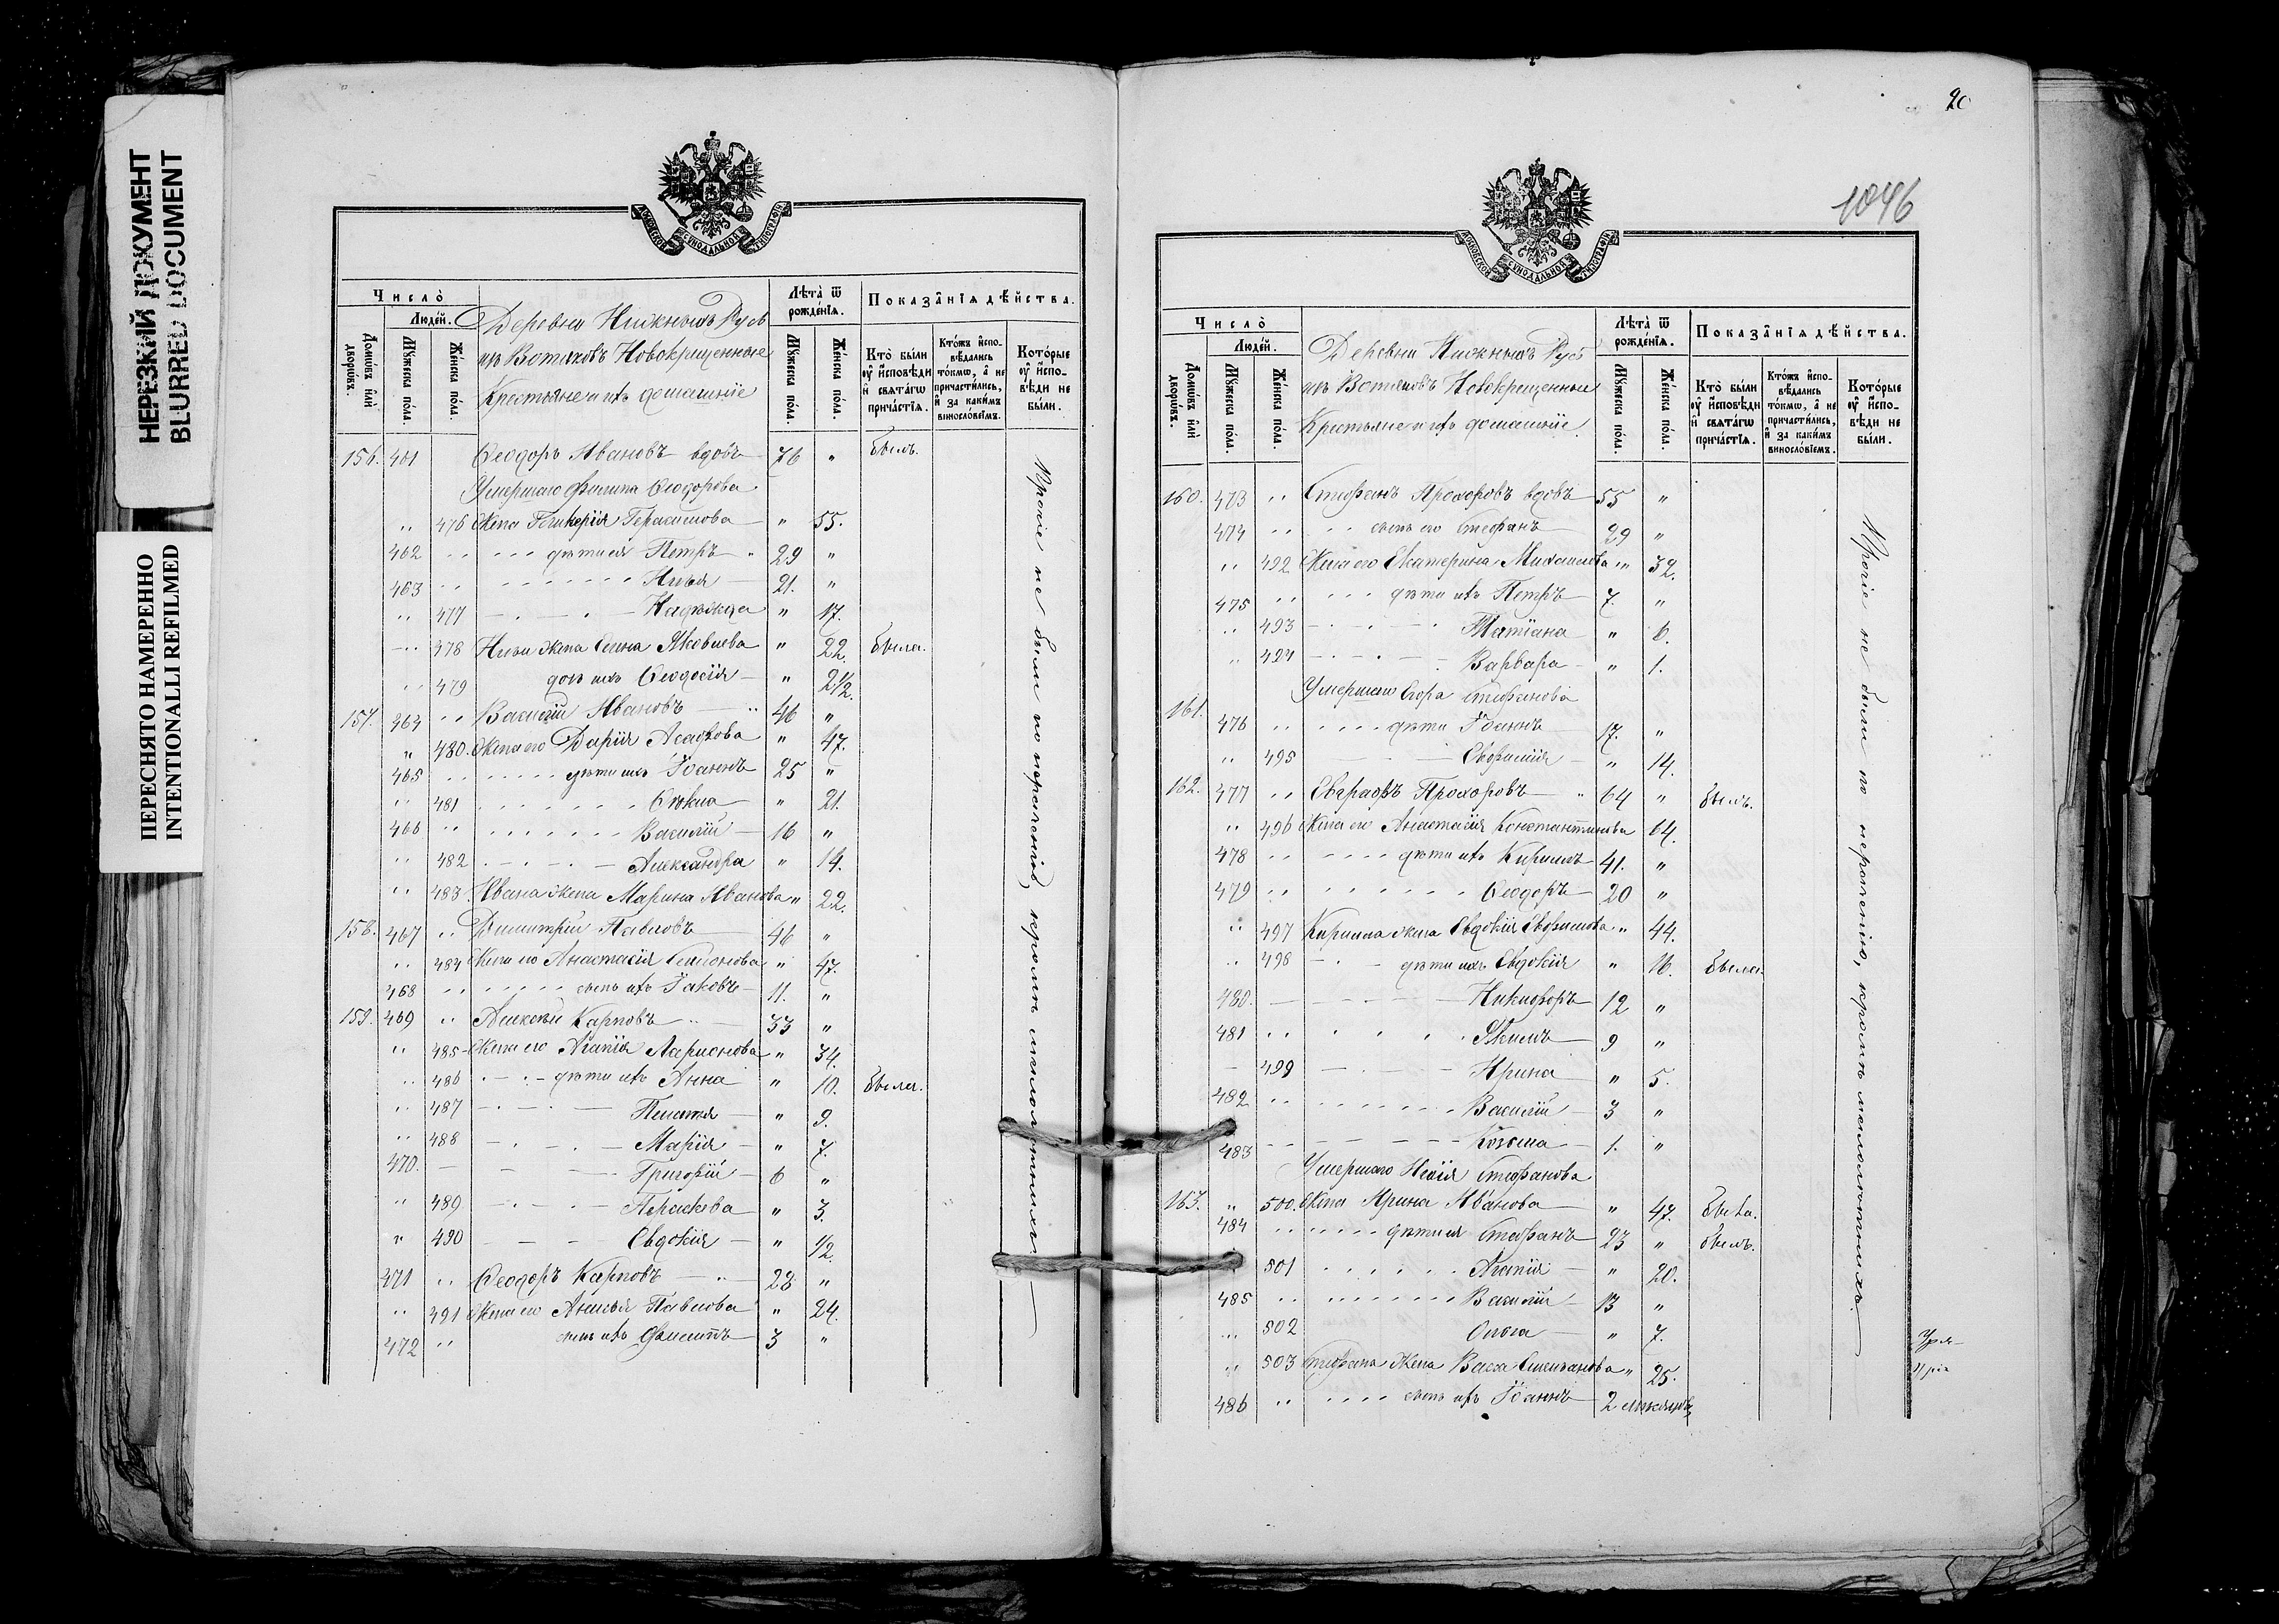 НЕРЕЗКИЙ ДОКУМЕНТ
BLURRED DOCUMENT
ПЕРЕСНЯТО НАМЕРЕННО
INTENTIONALLI REFILMED
МОСКОВСКОЙ СѴНОДАЛЬНОЙ ТИПОГРАФІИ
Число̀
Людей.
Домѡвъ и҆лѝ дворѡвъ.
Мꙋжеска по́ла.
Же́нска по́ла.
Деревни Нижнихъ Русь
изъ Вотяковъ Новокрещенные
Крестьяне и ихъ домашніе
Лѣта̀ ѿ рожде́нїѧ.
Мꙋжеска по́ла.
Же́нска по́ла.
Показа̑нїѧ дѣ́йства.
Кто̀ бы́ли ᲂу҆ и҆сповѣди и҆ свѧта́гѡ прича́стїѧ.
Кто́жъ и҆сповѣдались то́кмѡ, а҆ не причасти́лись, и҆ за каки́мъ винословіемъ.
Кото́рые ᲂу҆ и҆сповѣди не бы́ли.
156. 461 Ѳеодоръ Ивановъ вдовъ 76 " былъ.
Умершаго Филипа Ѳеодорова
" 476 Жена Гликерія Герасимова " 55.
462 " дѣти ея Петръ 29 "
463 " Илья 21. "
" 477 Надежда " 17.
" 478 Ильи жена Яковлева " 22. была.
" 479 дочь ихъ Ѳеодосія " 2 1/2.
157. 464 " Василій Ивановъ 46 "
" 480. Жена его Дарія Асафова " 47.
465 " дѣти ихъ Іоаннъ 25 "
" 481 Ѳекла " 21.
466 " Василій 16 "
" 482 Александра " 14.
" 483. Ивана жена Марина Иванова " 22.
158. 467 " Димитрій Павловъ 46 "
" 484 Жена его Анастасія " 47.
468 " сынъ ихъ Іаковъ 11. "
159. 469 " Алексѣй Карповъ 33 "
" 485 Жена его Агапія Ларионова " 34.
" 486 дѣти ихъ Анна " 10. была.
" 487 Пелагея " 9.
" 488 Марія " 7.
470. Григорій 6 "
" 489 Параскева " 3.
" 490 Евдокія " 1/2.
471 " Ѳеодоръ Карповъ 28 "
" 491 Жена его Павлова " 24.
472 " сынъ ихъ 3 "
Прочіе не были по нераденію, кромѣ малолѣтныхъ
20
1046
МОСКОВСКОЙ СѴНОДАЛЬНОЙ ТИПОГРАФІИ
Число̀
Людей.
Домѡвъ и҆лѝ дворѡвъ.
Мꙋжеска по́ла.
Же́нска по́ла.
Деревни Нижнихъ Русь
изъ Вотяковъ Новокрещенные
Крестьяне и ихъ домашніе.
Лѣта̀ ѿ рожде́нїѧ.
Мꙋжеска по́ла.
Же́нска по́ла.
Показа̑нїѧ дѣ́йства.
Кто̀ бы́ли ᲂу҆ и҆сповѣди и҆ свѧта́гѡ прича́стїѧ.
Кто́жъ и҆сповѣдались то́кмѡ, а҆ не причасти́лись, и҆ за каки́мъ винословіемъ.
Кото́рые ᲂу҆ и҆сповѣди не бы́ли.
160. 473 " Стефанъ Прохоровъ вдовъ 55 "
474 " сынъ его Стефанъ 29 "
" 492 Жена его Екатерина Михаилова " 32.
475 " дѣти ихъ Петръ 7. "
" 493 Татіана " 6.
" 494 Варвара " 1.
Умершаго Егора Стефанова
161. 476 " дѣти Іоаннъ 17. "
" 495 Евфимія " 14.
162. 477 " Евграфъ Прохоровъ 64 " былъ.
" 496 Жена его Анастасія Константинова 64.
478 " дѣти ихъ Кириллъ 41. "
479 " Ѳеодоръ 20 "
" 497 Кирилла жена Евдокія Евфимова " 44.
" 498 дѣти ихъ Евдокія " 16. была.
480. Никифоръ 12 "
481 " Якимъ 9 "
499 Ирина " 5.
482 " Василій 3 "
483 Козьма 1. "
Умершаго Стефанова
163. " 500. Жена Ирина Иванова " 47. была.
484 дѣти ея Стефанъ 23 " былъ.
501 Агапія " 20.
485 " Василій 13 "
" 502 Ольга " 7.
" 503 Стефана Жена Васса " 25.
486 " сынъ ихъ Іоаннъ 2 мѣсяцовъ
Прочіе не были по нераденію, кромѣ малолѣтныхъ.